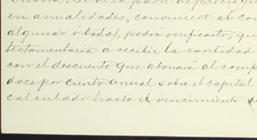 en anualidades, conveniese al com
alguna ó todas, podrá verificarlo, qu
testamentaria a recibir la cantidad
con el descuento que abonará al comp
doce por ciento anual sobre el capital
calculado hasta el vencimiento d